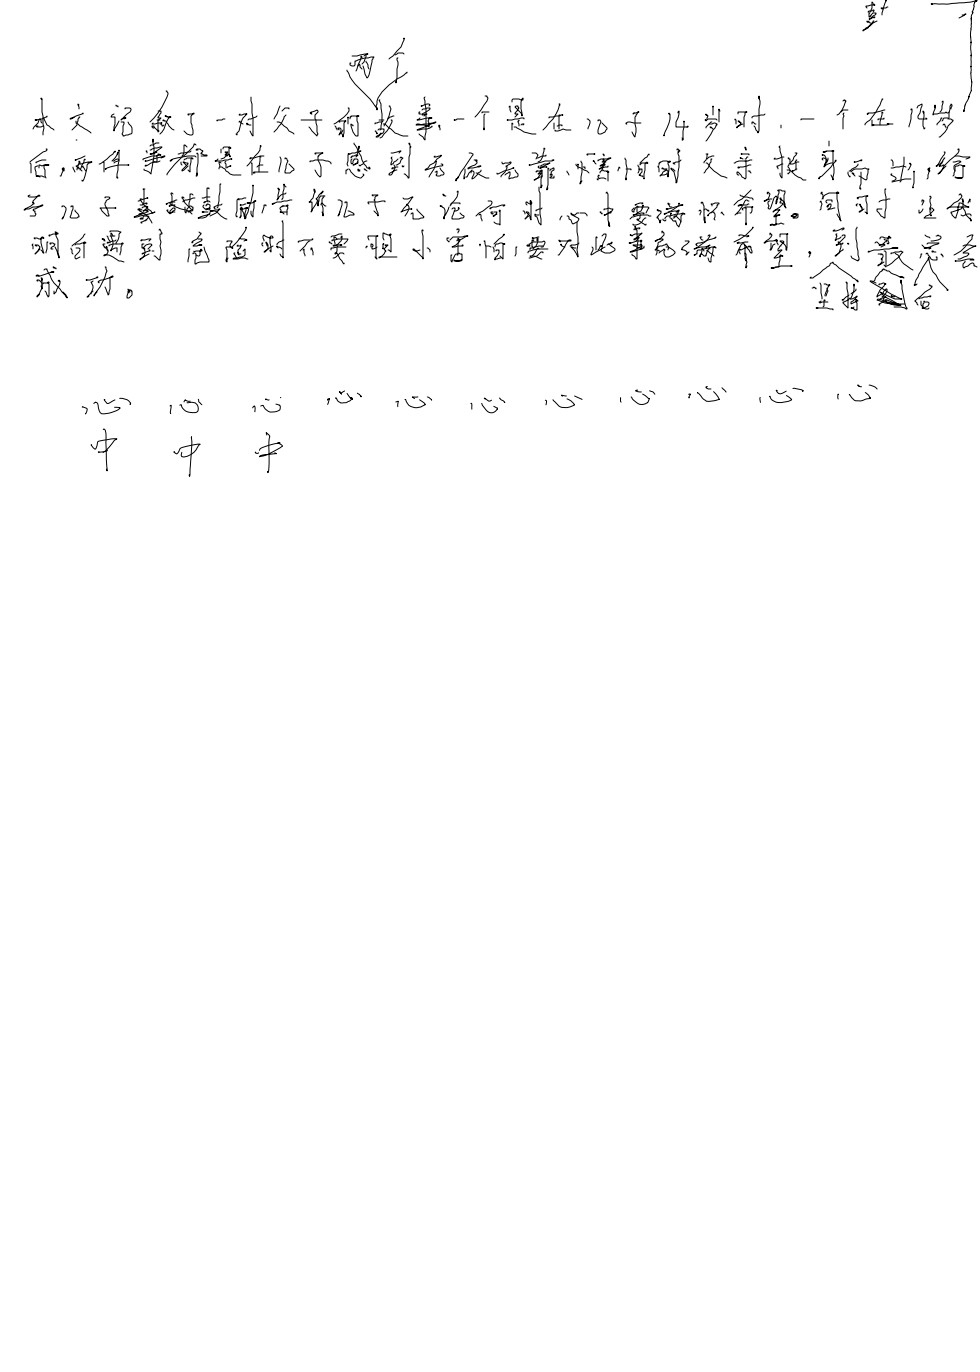 两个
本文记叙了一对父子的故事,一个是在儿子14岁时,一个在14岁
后,两件事都是在儿子感到无依无靠、害怕时父亲挺身而出,给
予儿子鼓励,告诉儿子无论何时心中要满怀希望。同时让我
明白遇到危险时不要胆小害怕,要对此事充满希望,到最总会
成功。
坚持到后
心 心 心 心 心 心 心 心 心 心 心
中 中 中